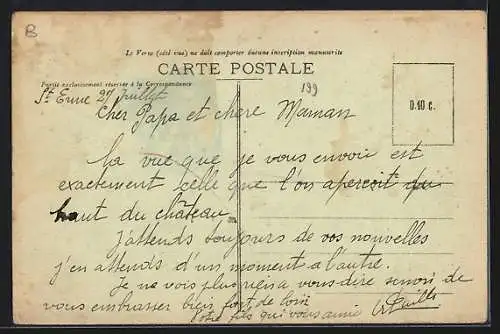 B
Le Verso (côté vue) ne doit comporter aucune inscription manuscrite
CARTE POSTALE
Partie exclusivement réservée à la Correspondance
St Enne 27 Juillet
199
0.10 c.
Cher Papa et chère Maman
La vue que je vous envoie est
exactement celle que l'on aperçoit du
haut du château.
J'attends toujours de vos nouvelles
j'en attends d'un moment à l'autre.
Je ne vois plus rien à vous dire sinon de
vous embrasser bien fort de loin
Votre fils qui vous aime